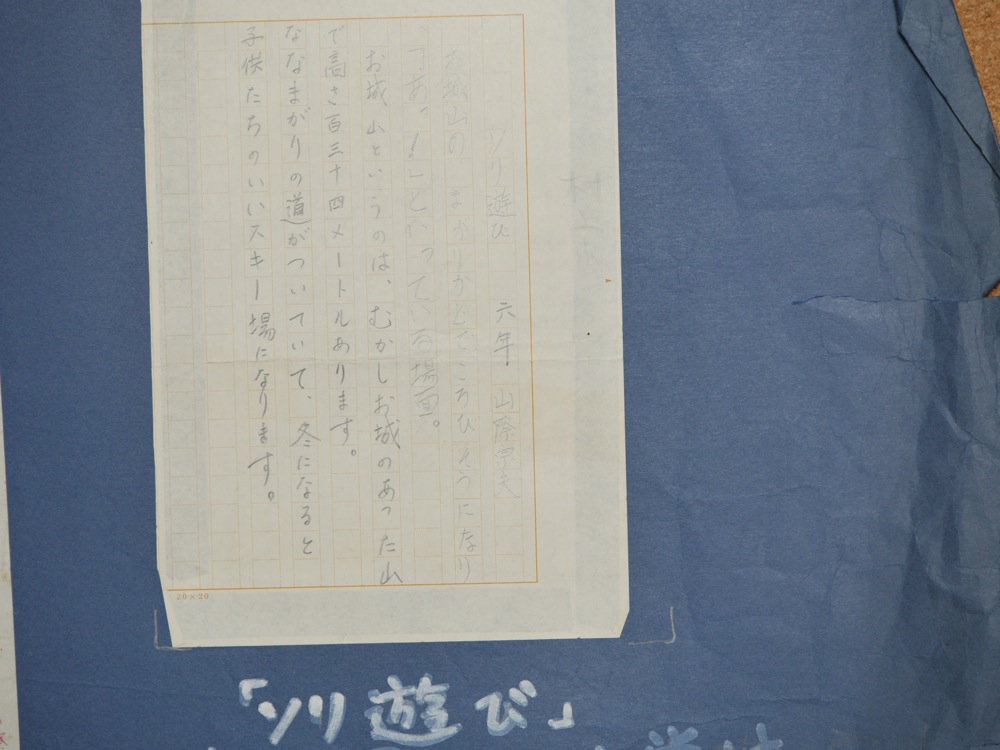 ソリ遊び　六年　山際
お城山の まがりかどで ころびそうになり
「あっ！」といっている場面。
お城山というのは、むかしお城のあった山
で高さ百三十四メートルあります。
ななまがりの道がついていて、冬になると
子供たちのいいスキー場になります。
20×20
「ソリ遊び」